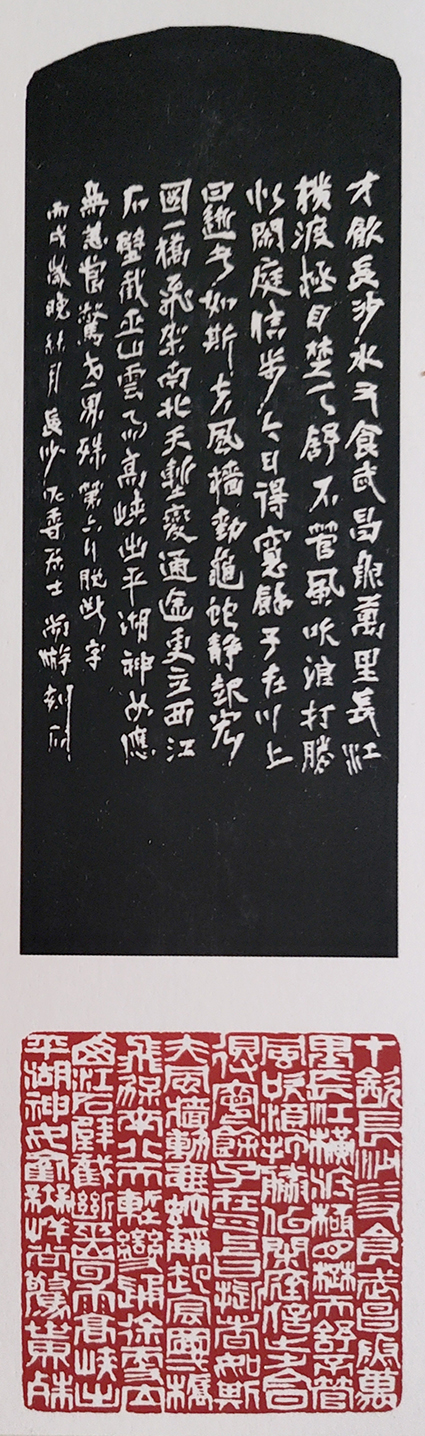 才飲長沙水又食武昌魚萬里長江
橫渡極目楚天舒不管風吹浪打勝
似閑庭信步今日得寬餘子在川上
曰逝者如斯夫風檣動龜蛇靜起宏
圖一橋飛架南北天塹變通途更立西江
石壁截巫山雲雨高峽出平湖神女應
無恙當驚世界殊第六行脫字
丙戌歲晚月長沙居士刻石
才飲長沙水又食武昌魚萬
里長江橫渡極目楚天舒不管
風吹浪打勝似閑庭信步今日
得寬餘子在川上曰逝者如斯
夫風檣動龜蛇靜起宏圖一橋
飛架南北天塹變通途更立西
江石壁截斷巫山雲雨高峽出
平湖神女應無恙當驚世界殊